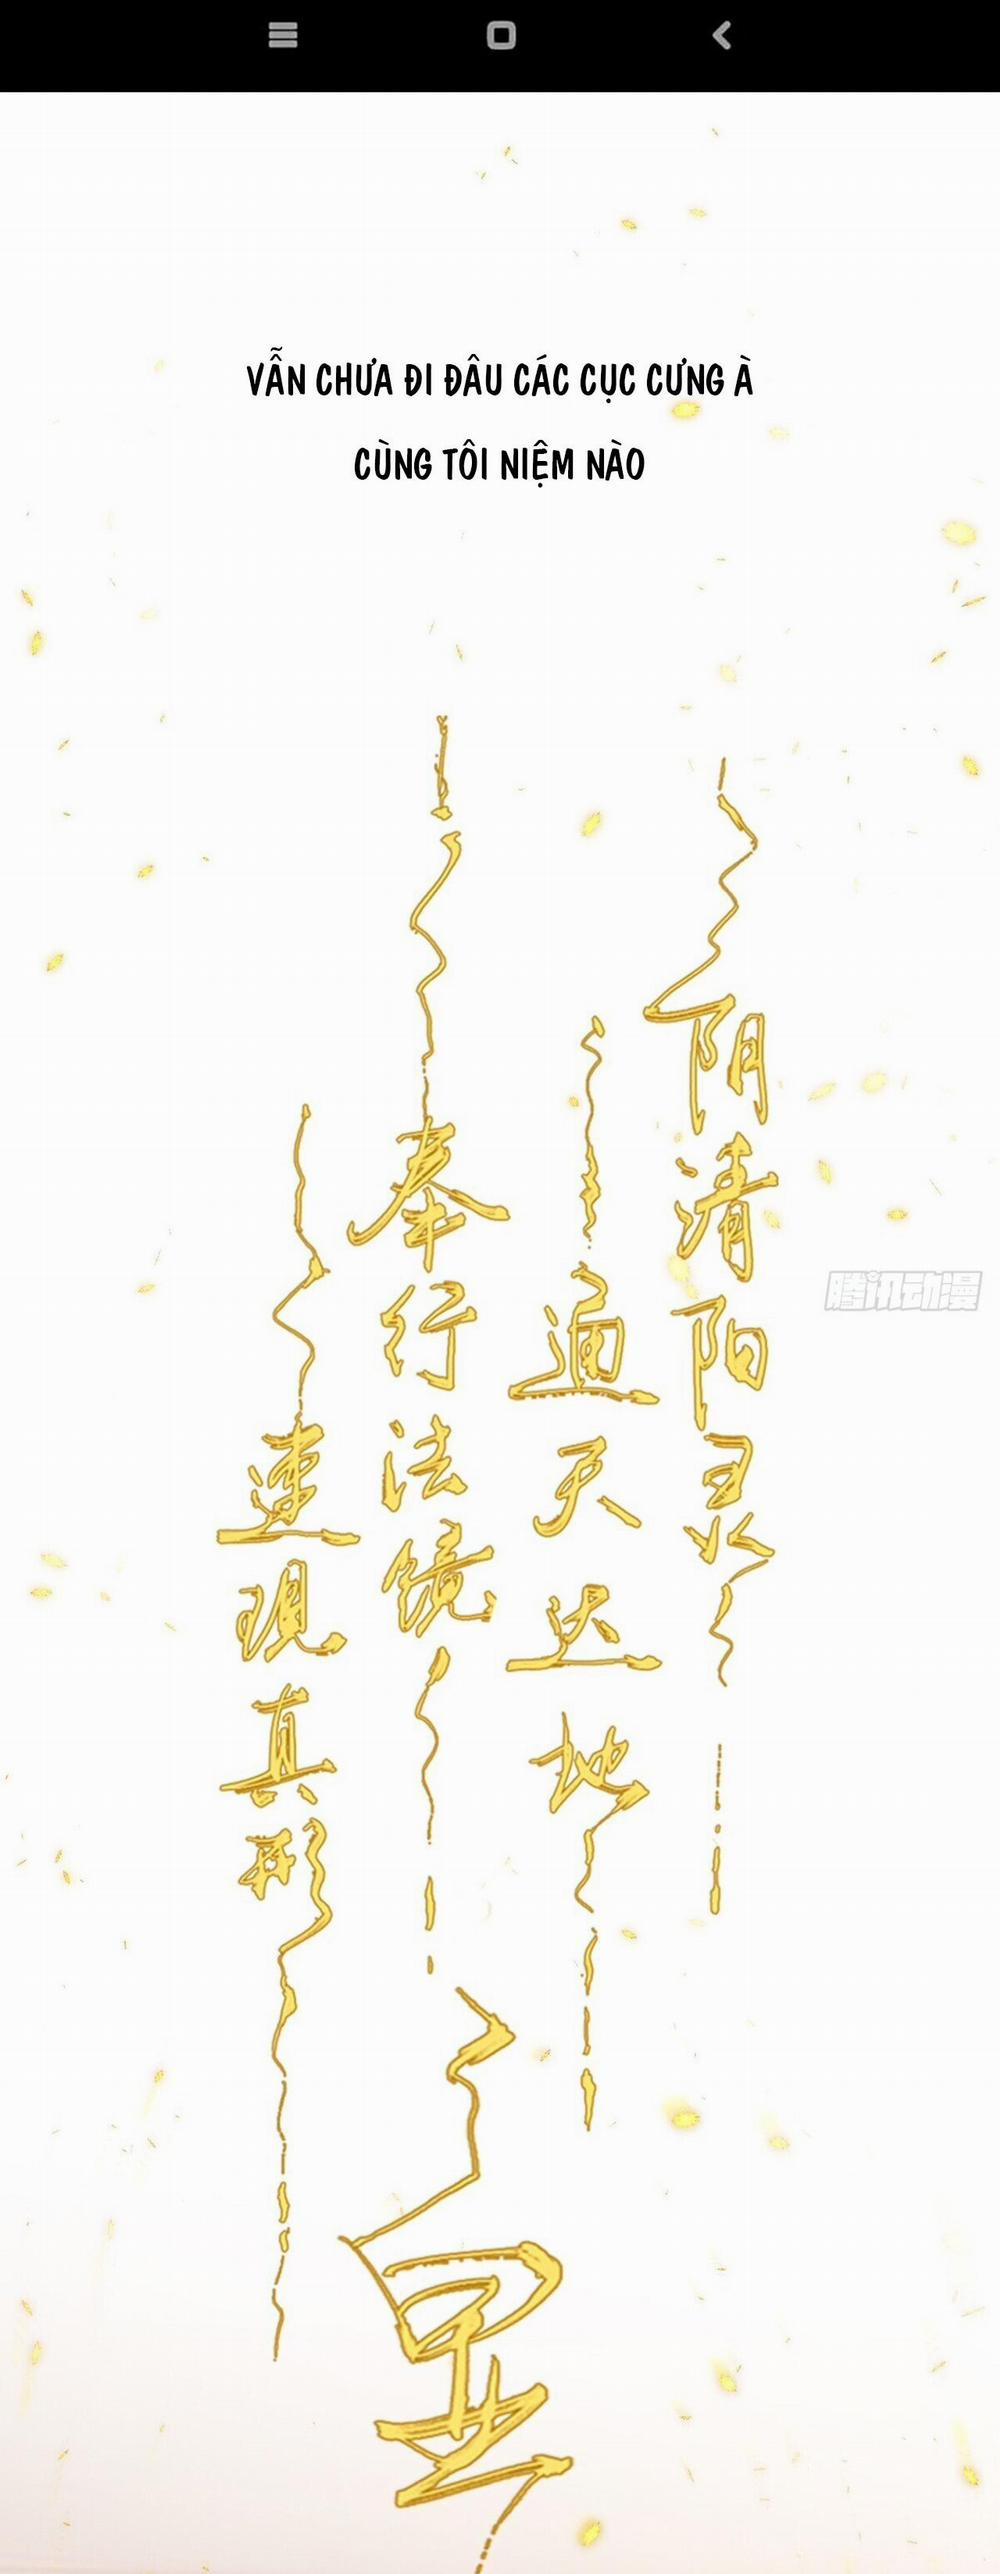 VẪN CHƯA ĐI ĐÂU CÁC CỤC CƯNG À
CÙNG TÔI NIỆM NÀO
阴清阳灵
通天达地
奉行法镜
速现真形
显
腾讯动漫